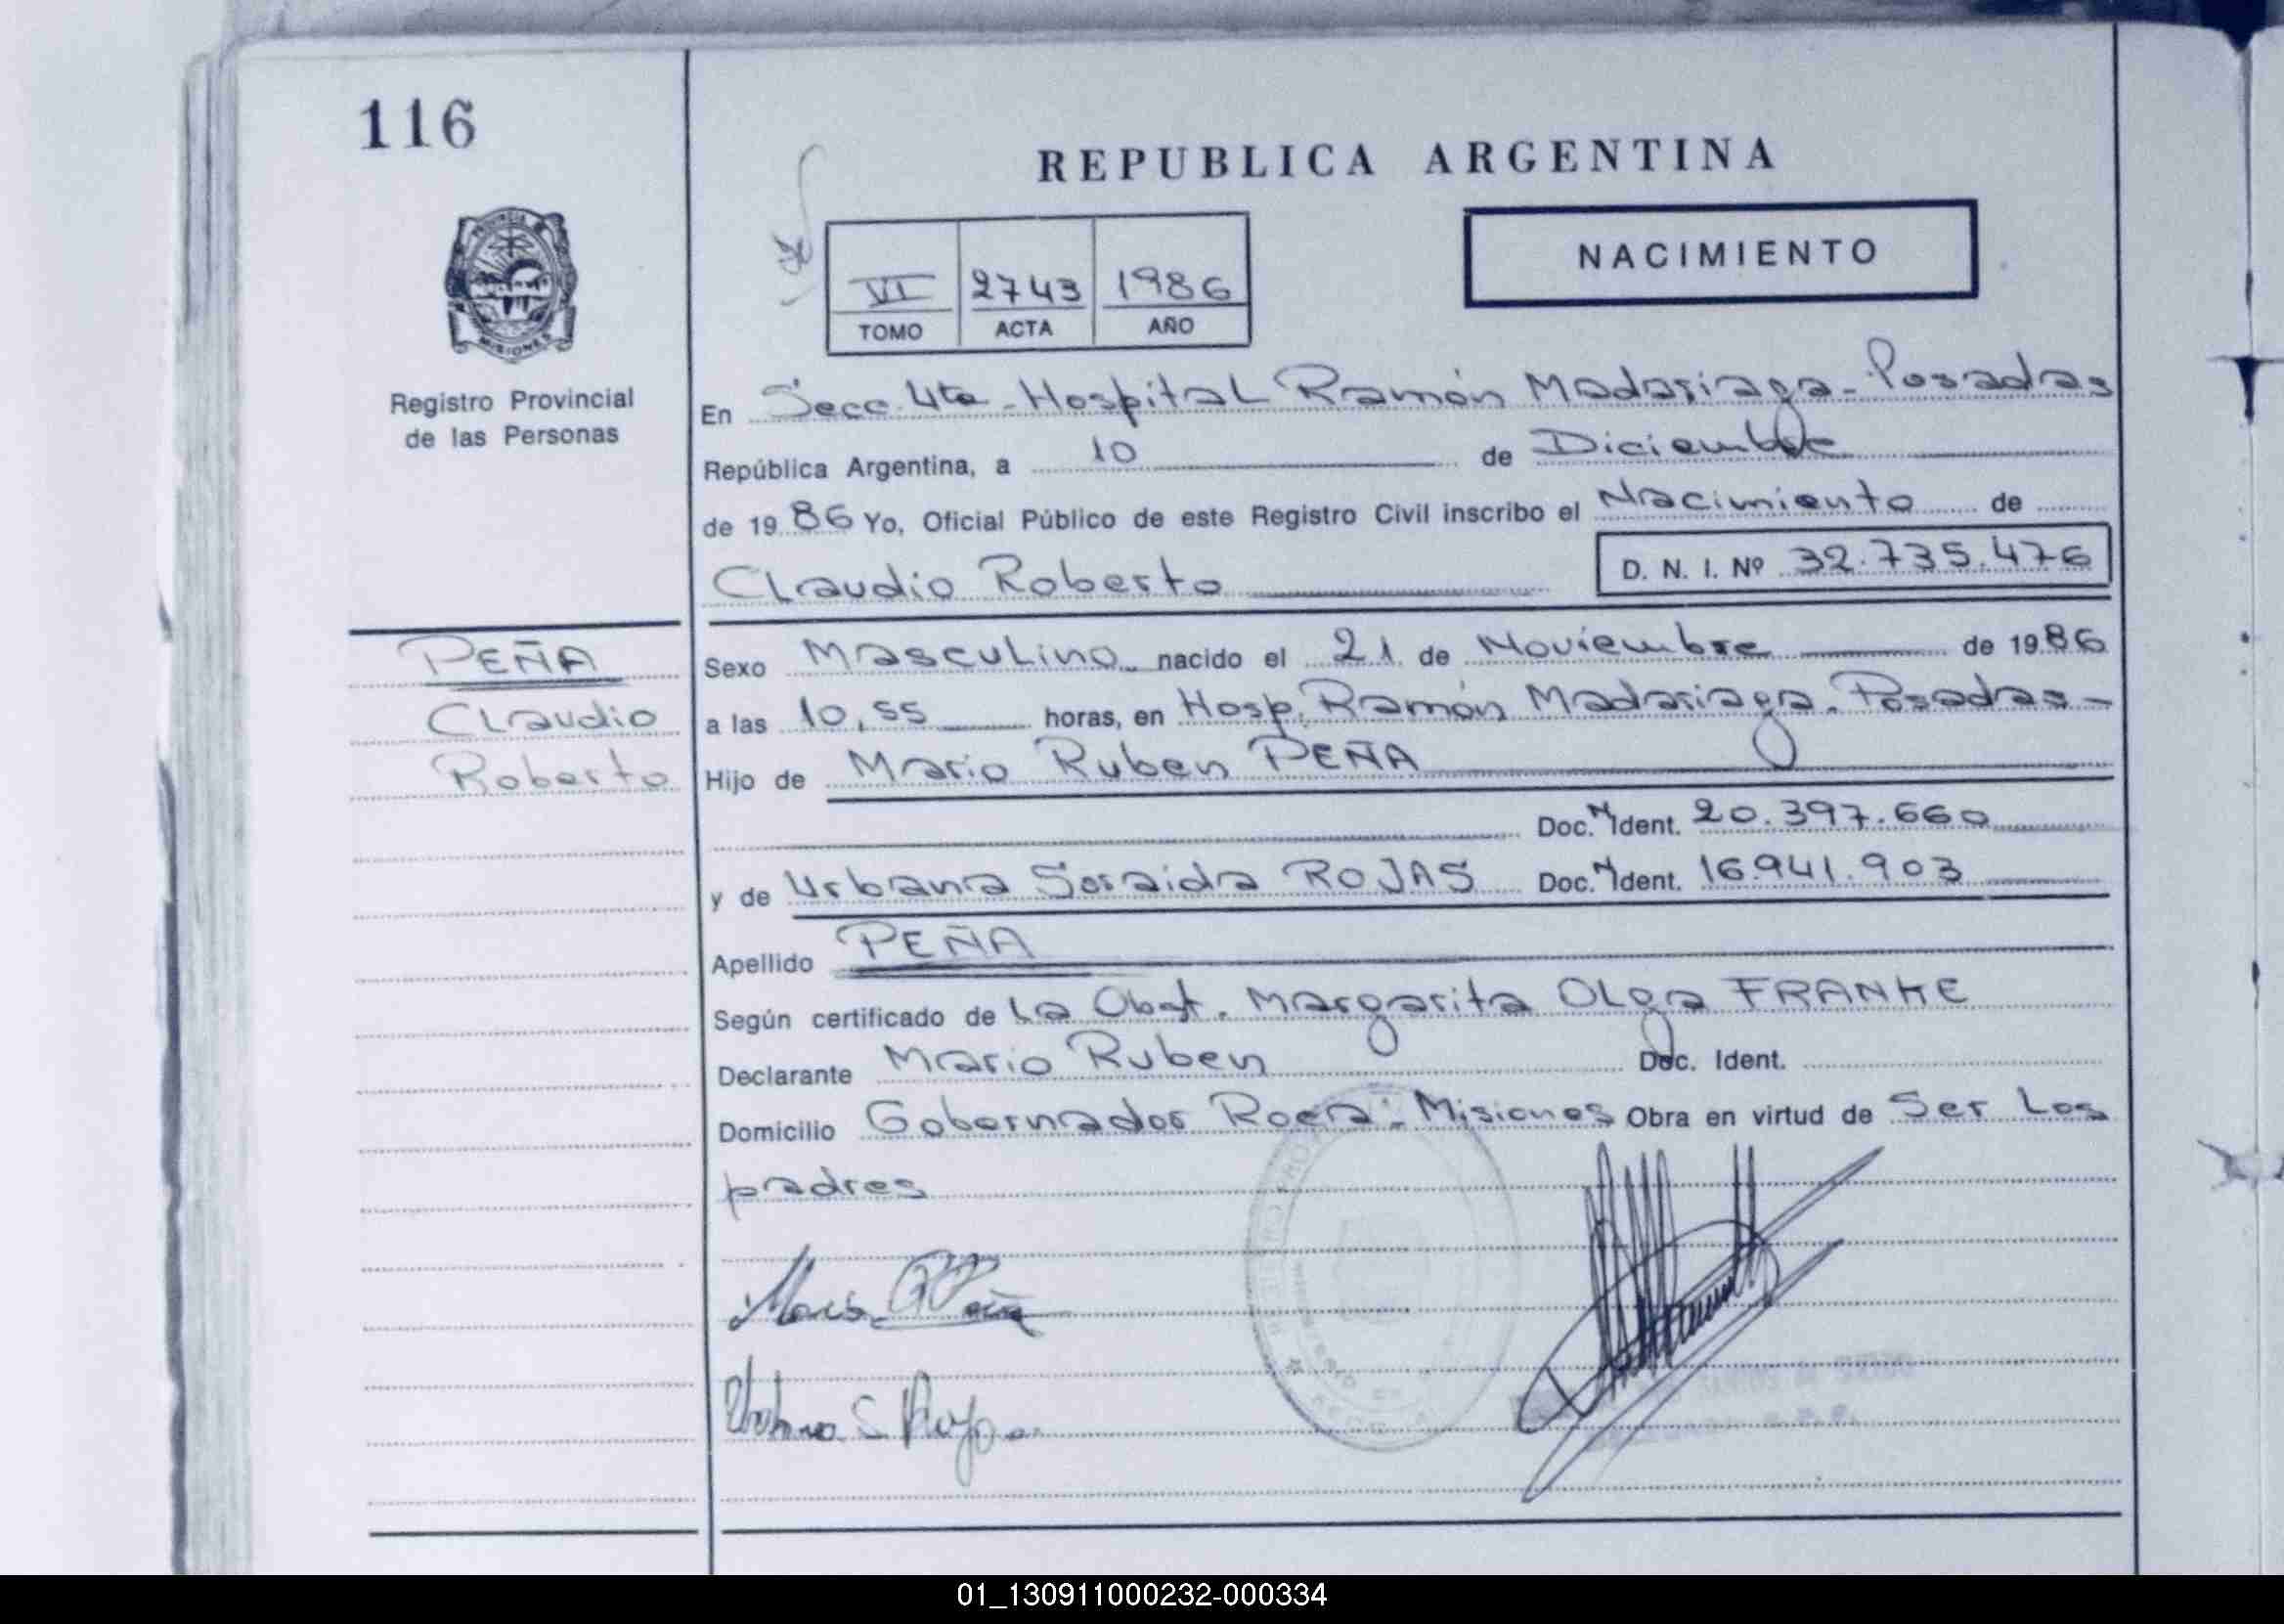 116
REPUBLICA ARGENTINA
NACIMIENTO
VI 2743 1986
TOMO ACTA AÑO
PROVINCIA DE
MISIONES
Registro Provincial
de las Personas
En Secc. 4ta - Hospital Ramón Madariaga - Posadas
República Argentina, a 10 de Diciembre
de 1986 Yo, Oficial Público de este Registro Civil inscribo el Nacimiento de
Claudio Roberto D. N. I. Nº 32.735.476
PEÑA
Claudio
Roberto
Sexo Masculino nacido el 21 de Noviembre de 1986
a las 10,55 horas, en Hosp. Ramón Madariaga. Posadas -
Hijo de Mario Ruben PEÑA
Doc. N Ident. 20.397.660
y de Urbana Soraida ROJAS Doc. N Ident. 16.941.903
Apellido PEÑA
Según certificado de La Obst. Margarita Olga FRANKE
Declarante Mario Ruben Doc. Ident.
Domicilio Gobernador Roca - Misiones Obra en virtud de Ser Los
padres
Mario R Peña
Urbana S. Rojas
01_130911000232-000334